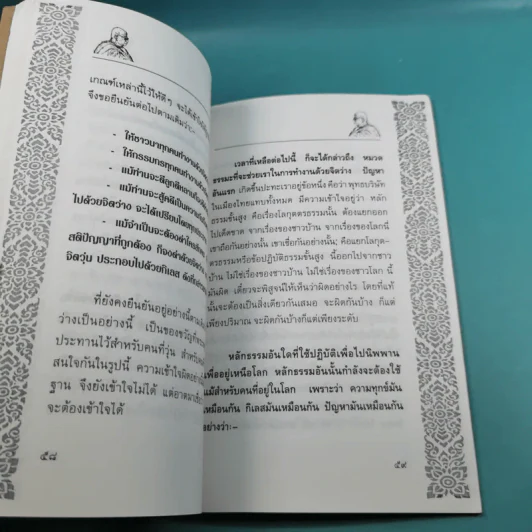 เกณฑ์เหล่านี้ไว้ให้ดีๆ จะได้เข้าใจ
จึงขอยืนยันต่อไปตามเดิมว่า:-
- ให้ชาวนาทุกคนทำงานด้วย
- ให้กรรมกรทุกคนทำงานด้วย
- แม้ท่านจะตีลูกศิษย์
- แม้ท่านจะสู้คดี
ไปด้วยจิตว่าง จะได้เปรียบ
- แม้จำเป็นจะต้องฆ่า
สติปัญญาที่ถูกต้อง ก็จงฆ่าด้วย
จิตวุ่น ประกอบไปด้วยกิเลส
ที่ยังคงยืนยันอยู่อย่างนี้
ว่างเป็นอย่างนี้ เป็นของขวัญ
ประทานไว้สำหรับคนที่วุ่น สำหรับ
สนใจกันในรูปนี้ ความเข้าใจผิด
ฐาน จึงยังเข้าใจไม่ได้ แต่อาตมา
จะต้องเข้าใจได้
๕๘
เวลาที่เหลือต่อไปนี้ ก็จะได้กล่าวถึง หมวด
ธรรมะที่จะช่วยเราในการทำงานด้วยจิตว่าง ปัญหา
อันแรก เกิดขึ้นปะทะเราอยู่ข้อหนึ่ง คือว่า พุทธบริษัท
ในเมืองไทยแทบทั้งหมด มีความเข้าใจว่า หลัก
ธรรมชั้นสูง คือเรื่องโลกุตตรธรรมนั้น ต้องแยกออก
ไปเด็ดขาด จากเรื่องของชาวบ้าน จากเรื่องของโลกนี่
เขาถือกันอย่างนั้น เขาเชื่อกันอย่างนั้น; คือแยกโลกุต-
ตรธรรมหรือข้อปฏิบัติธรรมชั้นสูง นี้ออกไปจากชาว
บ้าน ไม่ใช่เรื่องของชาวบ้าน ไม่ใช่เรื่องของชาวโลก นี้
มันผิด เดี๋ยวจะพิสูจน์ให้เห็นว่าผิดอย่างไร โดยที่แท้
นั้นจะต้องเป็นสิ่งเดียวกันเสมอ จะผิดกันบ้าง ก็แต่
เพียงปริมาณ จะผิดกันบ้างก็แต่เพียงระดับ
หลักธรรมอันใดที่ใช้ปฏิบัติเพื่อไปนิพพาน
เพื่ออยู่เหนือโลก หลักธรรมอันนั้นกำลังจะต้องใช้
แม้สำหรับคนที่อยู่ในโลก เพราะว่า ความทุกข์มัน
เหมือนกัน กิเลสมันเหมือนกัน ปัญหามันเหมือนกัน
อย่างว่า:-
๕๙